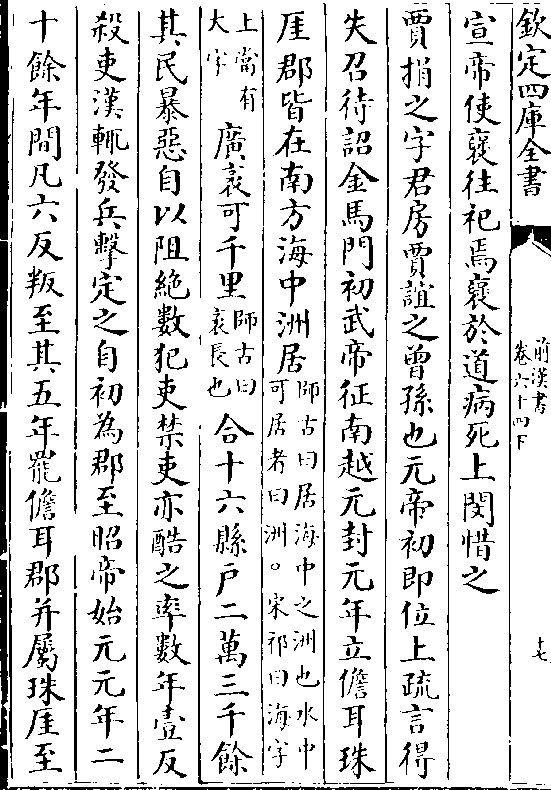 欽定四庫全書
前漢書
卷六十四下
十七
宣帝使襃往祀焉襃於道病死上閔惜之
賈捐之字君房賈誼之曾孫也元帝初即位上疏言得
失召待詔金馬門初武帝征南越元封元年立儋耳珠
厓郡皆在南方海中洲居師古曰居海中之洲也水中可居者曰洲。宋祁曰海字
上當有大字廣袤可千里師古曰袤長也合十六縣戶二萬三千餘
其民暴惡自以阻絶數犯吏禁吏亦酷之率數年壹反
殺吏漢輒發兵擊定之自初為郡至昭帝始元元年二
十餘年間凡六反叛至其五年罷儋耳郡并屬珠厓至